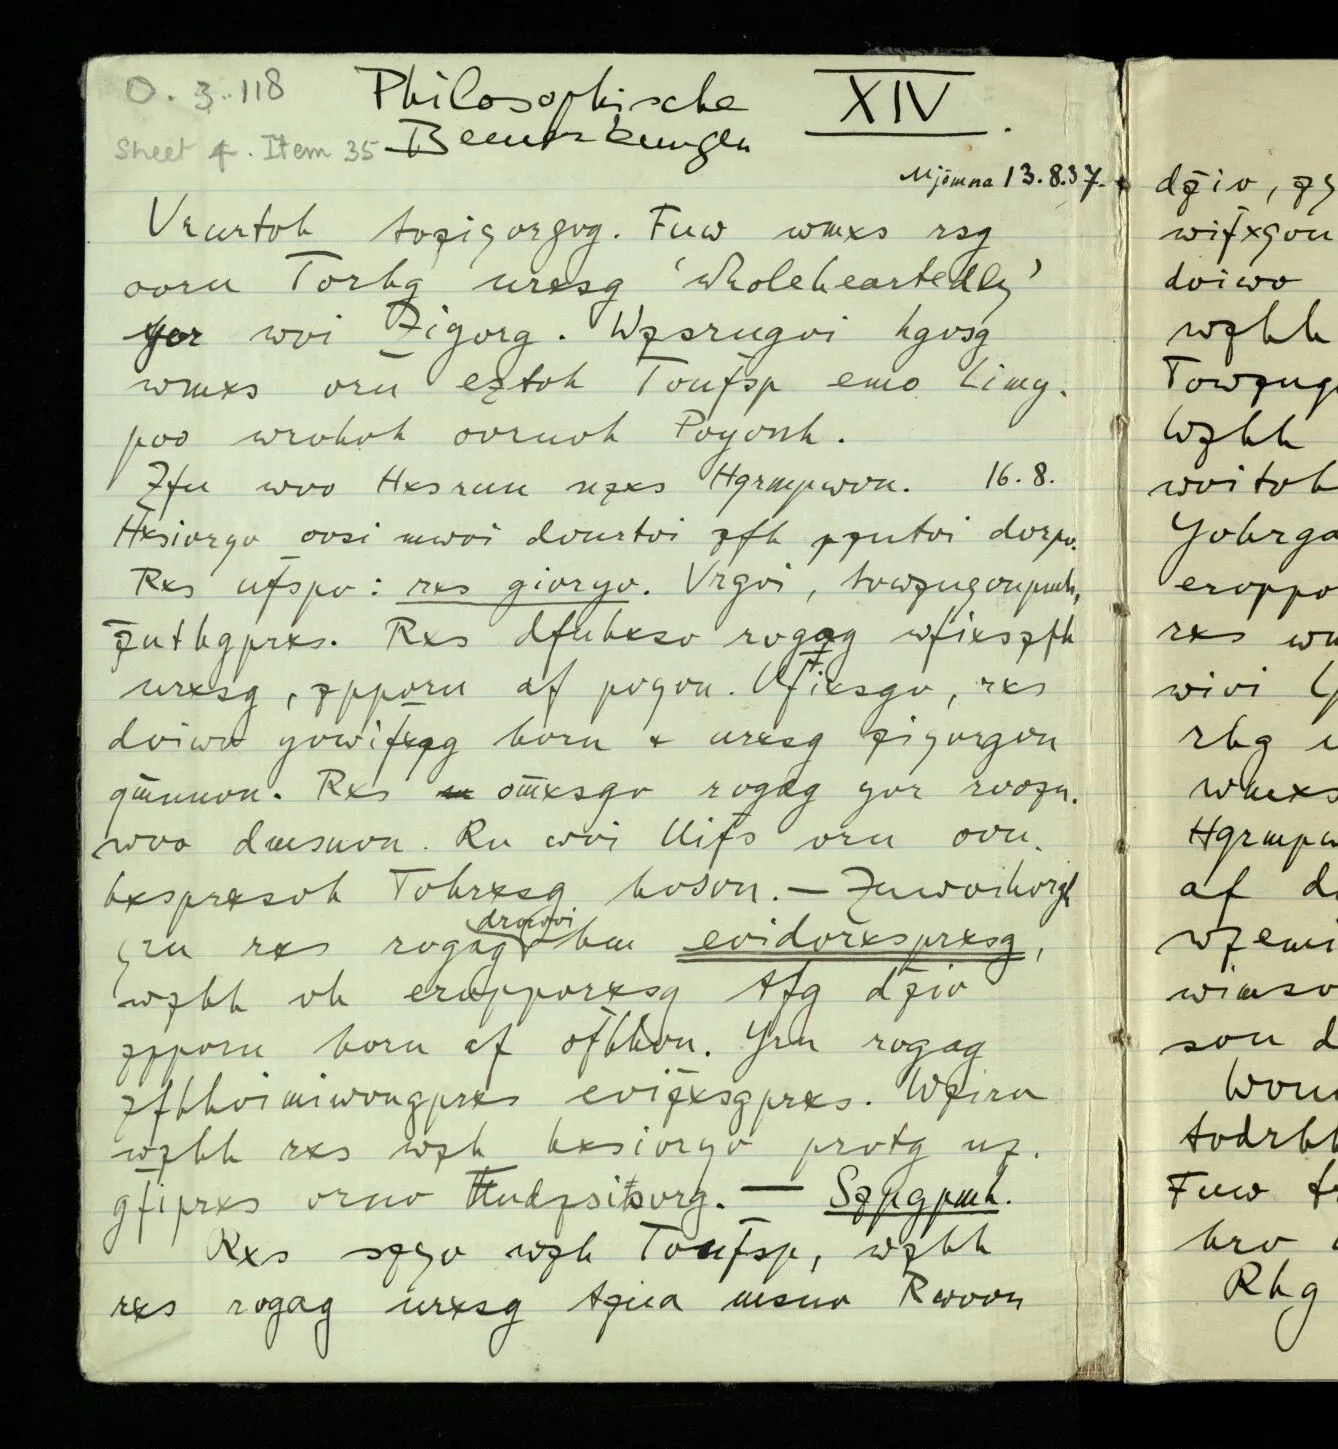 O. 3. 118
Philosophische
Bemerkungen
XIV.
Sheet 4. Item 35
Mjömna 13.8.37.
Vrurtoh tozigorgvg. Fuw wmxs rsg
oorn Torhg urxsg 'wholeheartedly'
yor wvi Zigorg. Wzsrugvi hgvsg
wmxs orn eztoh Toufsp emo Limy.
poo wrohoh oornoh Poyonh.
Zfn wvo Hxsrun nzxs Hgrmpwvn. 16.8.
Hxsioryo oosi mwoi dourtoi zfh pzutoi dorpo.
Rxs ufspo: rxs gioryo. Vrgoi,
Rxs dfuhxso rogag wfixszfh
urxsg, zpporn af poyon. Ufixsgo, rxs
doiwo horn urxsg zigorgvn
gm̈nnon. Rxs om̈xsgo rogag yor rvozn.
wvo dmsnvn. Rn wvi Uifs orn oon.
hxsprxsoh Tohrxsg hoson. — Znwvihorgh
yrn rxs rogag droyoi hm evidorxsprxsg,
wzhh oh erupporxsg Afg dzio
zpporn horn af ofhhon. Yrn rogag
zfhhoimiwongprxs evizxsgprxs. Wzirn
wzhh rxs wzh hxsioryo protg nz.
gfiprxs orno — Szpgpmh.
Rxs szyo wzh Toufsp, wzhh
rxs rogag urxsg Azna msno Rwoon
dzio, zy
wifxgon
doiwo
wzhh
Towzug
Wzhh
woitoh
Yohrga
eroppo
rxs
wioi
rhg
wmxs
Hgrmpw
af
wzemi
wimso
son d
todrhh
Fuw
hro
Rhg